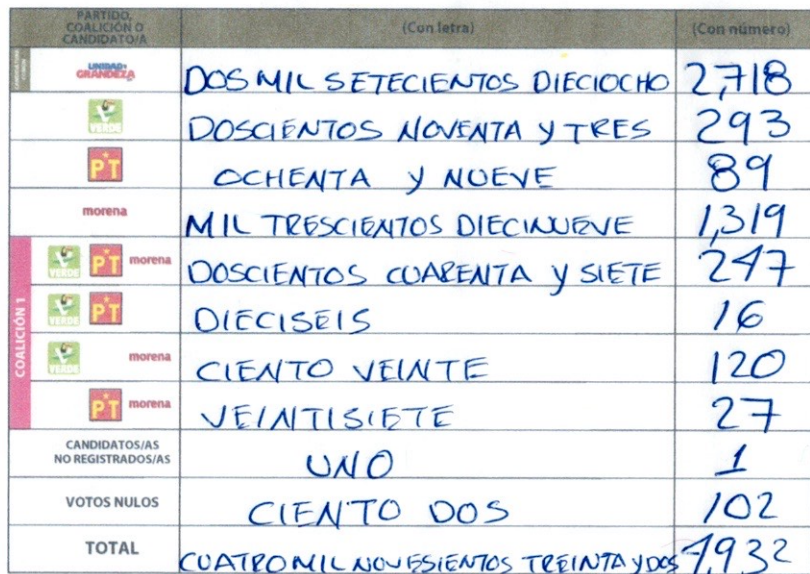 PARTIDO, COALICIÓN O CANDIDATO/A (Con letra) (Con número)
UNIDAD Y GRANDEZA DOS MIL SETECIENTOS DIECIOCHO 2,718
VERDE DOSCIENTOS NOVENTA Y TRES 293
PT OCHENTA Y NUEVE 89
morena MIL TRESCIENTOS DIECINUEVE 1,319
COALICIÓN 1
VERDE PT morena DOSCIENTOS CUARENTA Y SIETE 247
VERDE PT DIECISEIS 16
VERDE morena CIENTO VEINTE 120
PT morena VEINTISIETE 27
CANDIDATOS/AS NO REGISTRADOS/AS UNO 1
VOTOS NULOS CIENTO DOS 102
TOTAL CUATRO MIL NOVESIENTOS TREINTA Y DOS 4,932